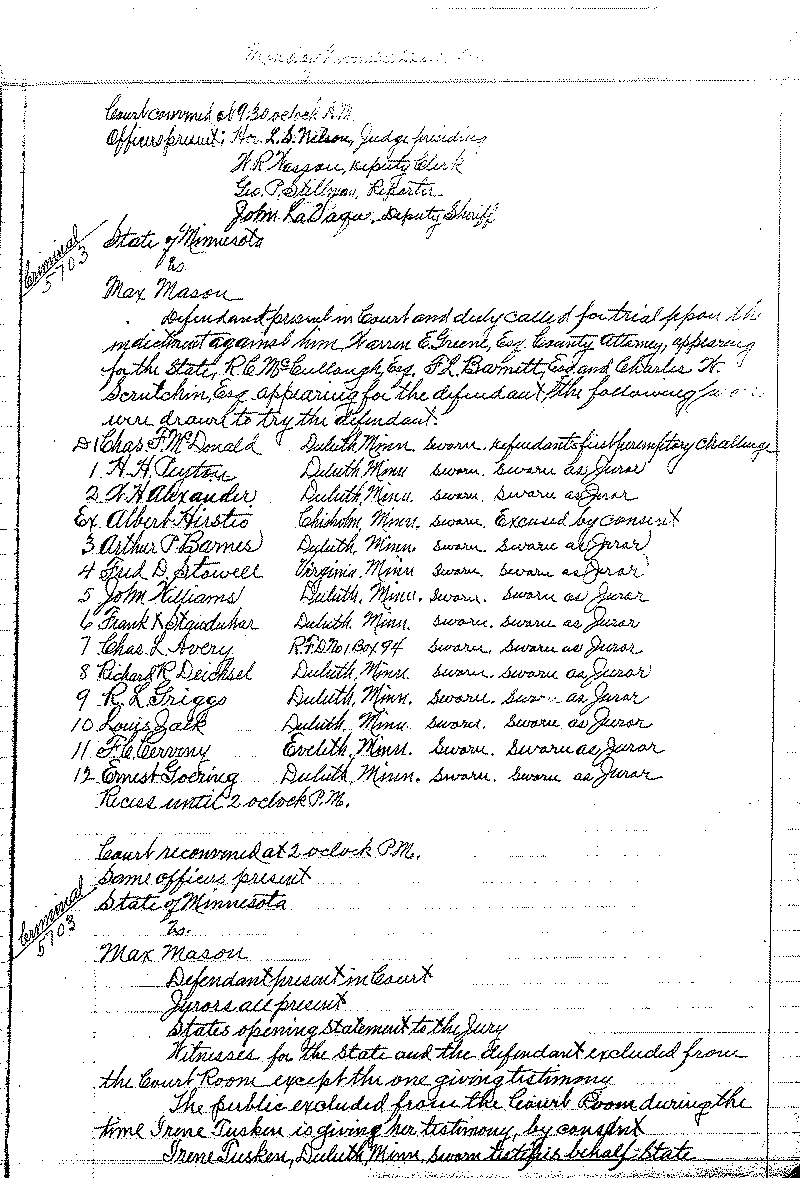 Monday
Court convened at 9:30 oclock A.M.
Officers present; Hon. L.S. Nelson, Judge presiding
W R Wesson, Deputy Clerk
Geo. P. Stillman, Reporter
John LaVaque, Deputy Sheriff
Criminal
5703
State of Minnesota
vs.
Max Mason
Defendant present in Court and duly called for trial upon the
indictment against him Warren E. Greene, Esq. County Attorney, appearing
for the State, R.C. McCullough, Esq. F.L. Barnett, Esq and Charles W.
Scrutchin, Esq. appearing for the defendant, the following
were drawn to try the defendant.
D1 Chas. F. McDonald Duluth Minn sworn. Defendants first peremptory challenge
1 H.H. Duluth Minn sworn. Sworn as Juror
2 W H Alexander Duluth, Minn. sworn. Sworn as Juror
Ex. Albert Hirstio Chisholm, Minn. sworn. Excused by consent
3 Arthur P. Barnes Duluth, Minn. sworn. Sworn as Juror
4 Fred D. Stowell Virginia, Minn sworn. Sworn as Juror
5 John Williams Duluth, Minn. sworn. Sworn as Juror
6 Frank X Stauduhar Duluth, Minn sworn. Sworn as Juror
7 Chas. L Avery R.F.D No. 1 Box 94 sworn. Sworn as Juror
8 Richard R. Deichsel Duluth, Minn. sworn. Sworn as Juror
9 R L Griggs Duluth, Minn. sworn. Sworn as Juror
10 Louis Zalk Duluth, Minn sworn. Sworn as Juror
11 F. C. Cerveny Eveleth, Minn. sworn. Sworn as Juror
12 Ernest Goering Duluth, Minn. sworn. Sworn as Juror
Recess until 2 oclock P.M.
Court reconvened at 2 oclock P.M.
Same officers present
Criminal
5703
State of Minnesota
vs.
Max Mason
Defendant present in Court
Jurors all present
States opening statement to the Jury
Witnesses for the State and the defendant excluded from
the Court Room except the one giving testimony
The public excluded from the Court Room during the
time Irene Tusken is giving her testimony, by consent
Irene Tusken, Duluth, Minn, sworn testifies behalf State